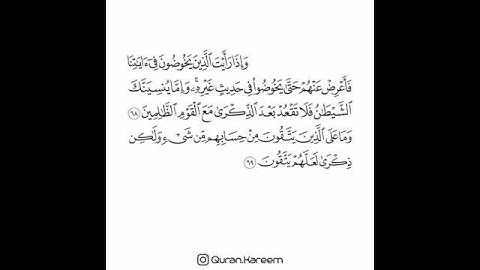 وَإِذَا رَأَيْتَ ٱلَّذِينَ يَخُوضُونَ فِىٓ ءَايَـٰتِنَا
فَأَعْرِضْ عَنْهُمْ حَتَّىٰ يَخُوضُوا۟ فِى حَدِيثٍ غَيْرِهِۦ ۚ وَإِمَّا يُنسِيَنَّكَ
ٱلشَّيْطَـٰنُ فَلَا تَقْعُدْ بَعْدَ ٱلذِّكْرَىٰ مَعَ ٱلْقَوْمِ ٱلظَّـٰلِمِينَ ٦٨
وَمَا عَلَى ٱلَّذِينَ يَتَّقُونَ مِنْ حِسَابِهِم مِّن شَىْءٍ وَلَـٰكِن
ذِكْرَىٰ لَعَلَّهُمْ يَتَّقُونَ ٦٩
Quran.Kareem